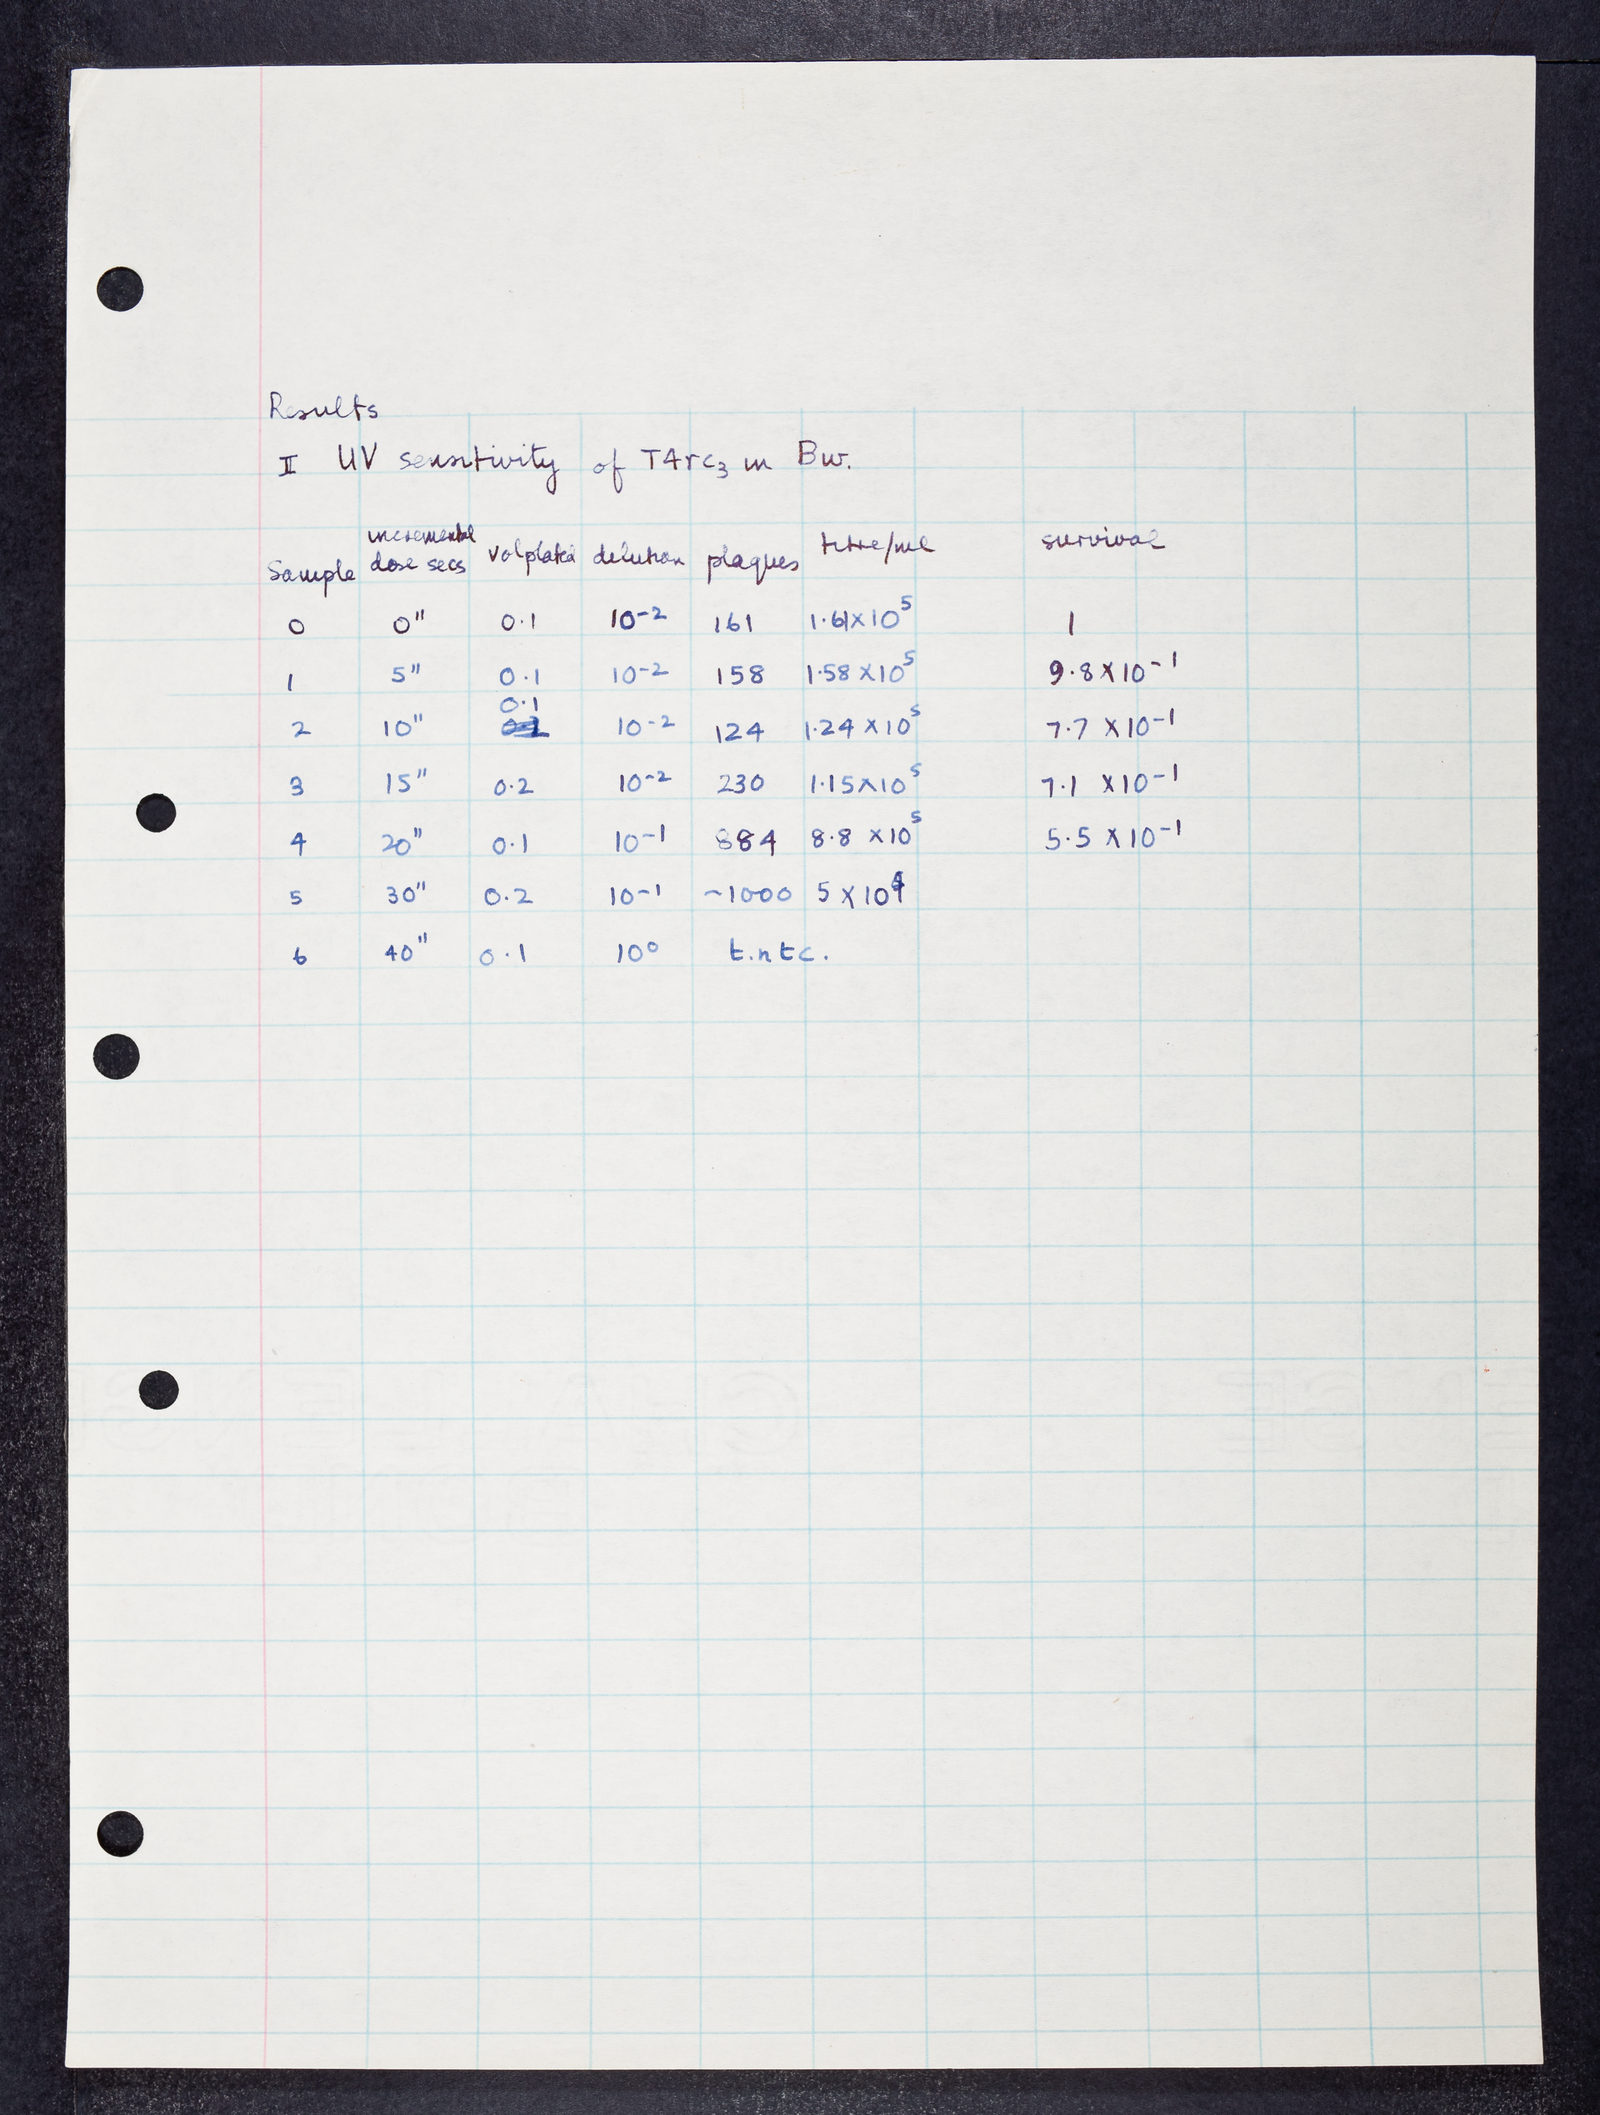 Results
II UV sensitivity of T4rc3 in Bw.
Sample incremental dose secs vol plated dilution plaques titre/ml survival
0 0" 0.1 10⁻² 161 1.61×10⁵ 1
1 5" 0.1 10⁻² 158 1.58×10⁵ 9.8×10⁻¹
2 10" 0.1 10⁻² 124 1.24×10⁵ 7.7×10⁻¹
3 15" 0.2 10⁻² 230 1.15×10⁵ 7.1×10⁻¹
4 20" 0.1 10⁻¹ 884 8.8×10⁵ 5.5×10⁻¹
5 30" 0.2 10⁻¹ ~1000 5×10⁴
6 40" 0.1 10⁰ t.n t c.